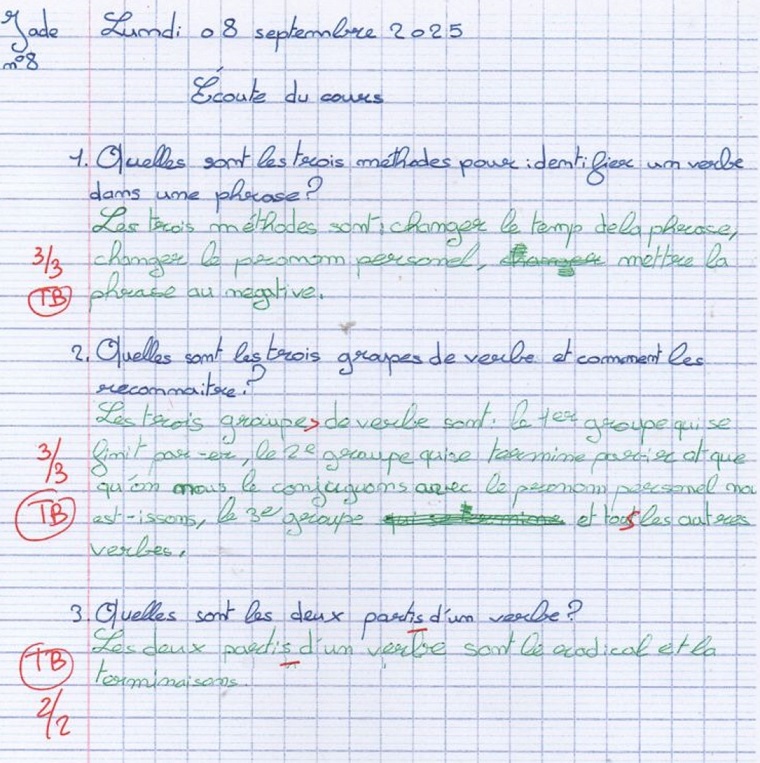 Jade Lundi 08 septembre 2025
n°8
Écoute du cours
1. Quelles sont les trois méthodes pour identifier un verbe
dans une phrase?
Les trois méthodes sont: changer le temp de la phrase,
3/3 changer le pronom personel, changer mettre la
TB phrase au negative.
2. Quelles sont les trois groupes de verbe et comment les
reconnaitre?
Les trois groupes de verbe sont: le 1er groupe qui se
3/3 finit par -er, le 2e groupe qui se termine par -ir et que
qu'on nous le conjuguons avec le pronom personel nou
TB est -issons, le 3e groupe et tous les autres
verbes.
3. Quelles sont les deux partis d'un verbe?
TB Les deux partis d'un verbe sont le radical et la
terminaisons.
2/2